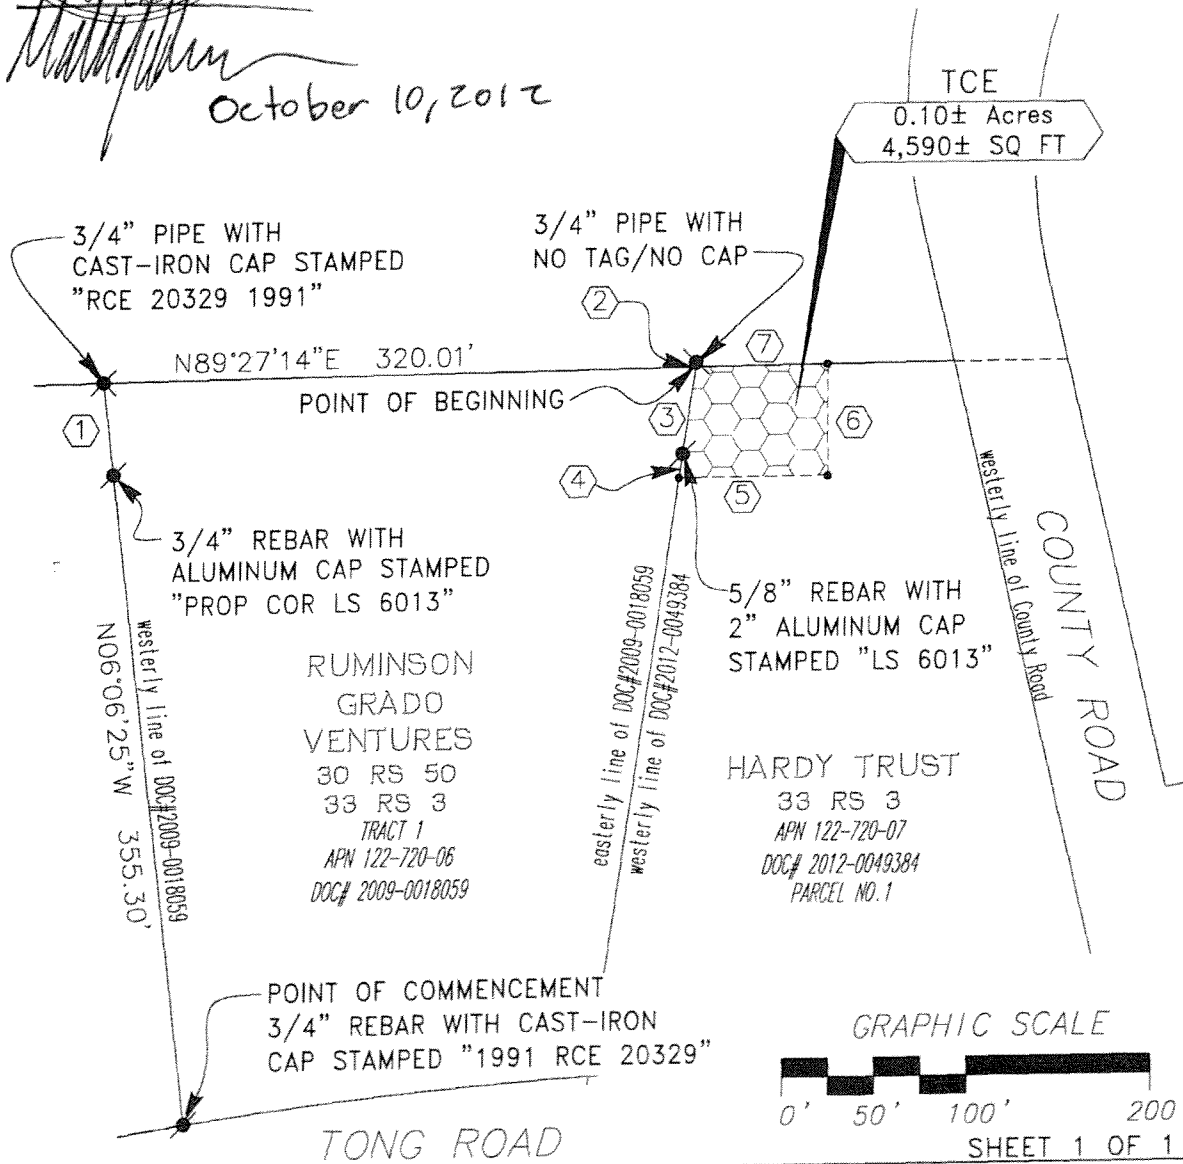 October 10, 2012
TCE
0.10± Acres
4,590± SQ FT
3/4" PIPE WITH
CAST-IRON CAP STAMPED
"RCE 20329 1991"
3/4" PIPE WITH
NO TAG/NO CAP
2
7
N89°27'14"E 320.01'
POINT OF BEGINNING
1
3
6
4
5
3/4" REBAR WITH
ALUMINUM CAP STAMPED
"PROP COR LS 6013"
5/8" REBAR WITH
2" ALUMINUM CAP
STAMPED "LS 6013"
westerly line of DOC#2009-0018059
N06°06'25"W 355.30'
RUMINSON
GRADO
VENTURES
30 RS 50
33 RS 3
TRACT 1
APN 122-720-06
DOC# 2009-0018059
easterly line of DOC#2009-0018059
westerly line of DOC#2012-0049384
HARDY TRUST
33 RS 3
APN 122-720-07
DOC# 2012-0049384
PARCEL NO.1
westerly line of County Road
COUNTY ROAD
POINT OF COMMENCEMENT
3/4" REBAR WITH CAST-IRON
CAP STAMPED "1991 RCE 20329"
TONG ROAD
GRAPHIC SCALE
0' 50' 100' 200
SHEET 1 OF 1